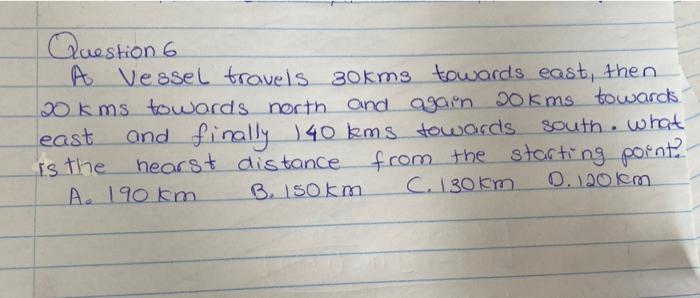 Question 6
A Vessel travels 30kms towards east, then
20 kms towards north and again 20kms towards
east and finally 140 kms towards south. what
is the nearst distance from the starting point?
A. 190 km B. 150km C. 130km D. 120km